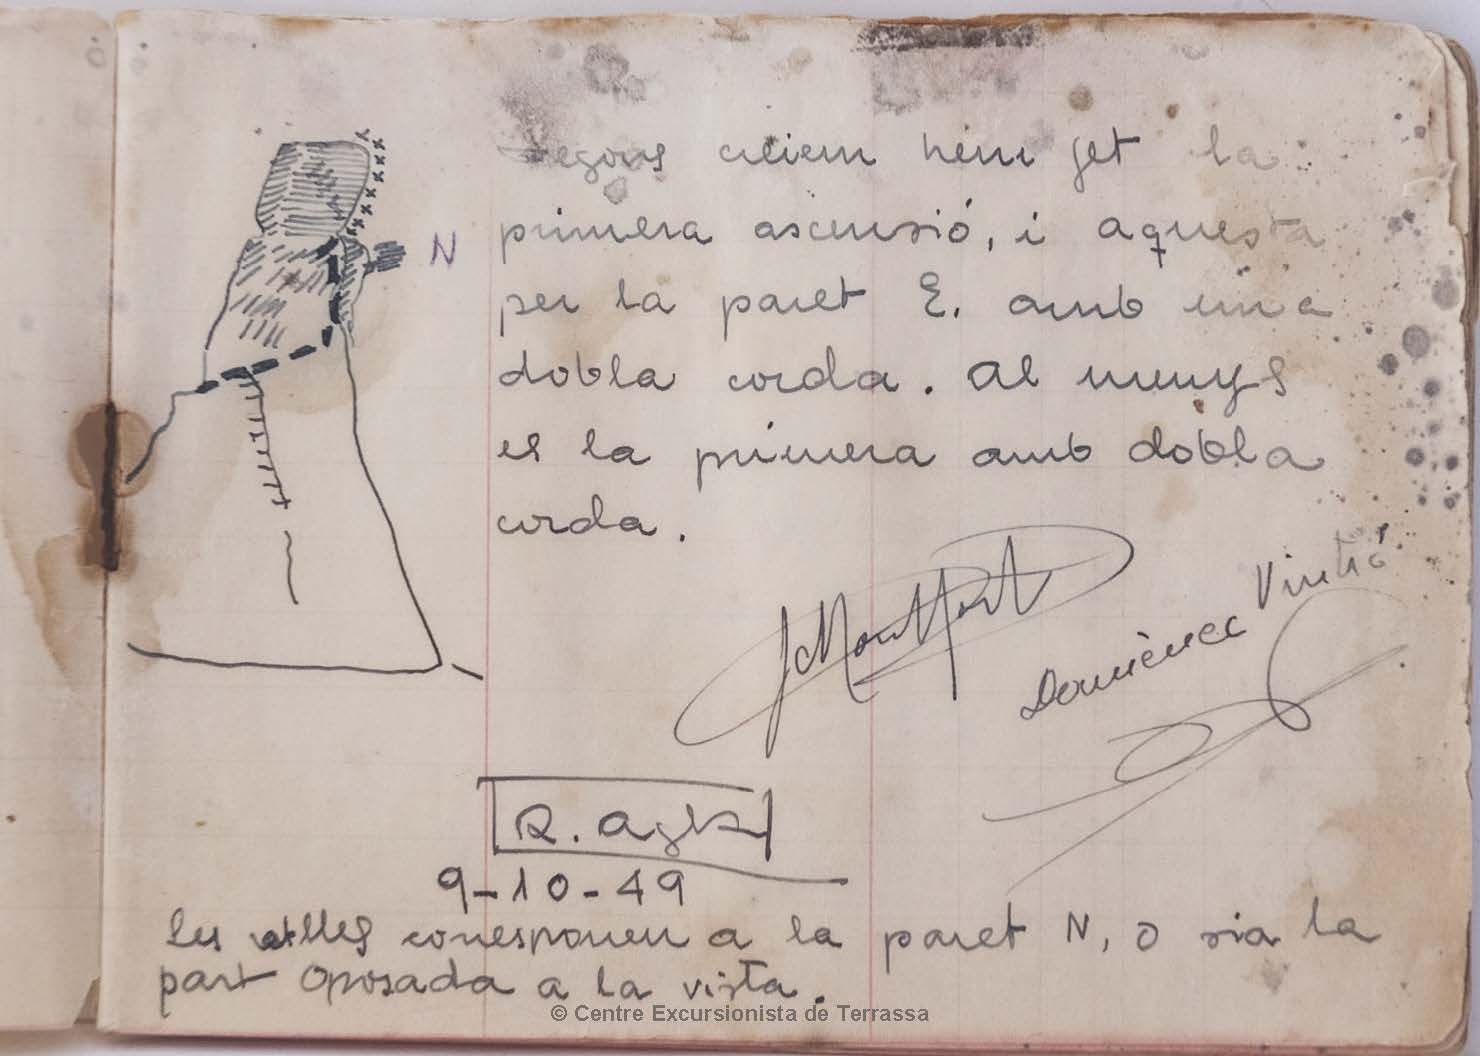 N
Segons creiem hem fet la
primera ascensió, i aquesta
per la paret E. amb una
dobla corda. Al menys
es la primera amb dobla
corda.
J Montfort
Domènec Vintró
R. Agla
9-10-49
Les atlles corresponen a la paret N, O sia la
part oposada a la vista.
© Centre Excursionista de Terrassa